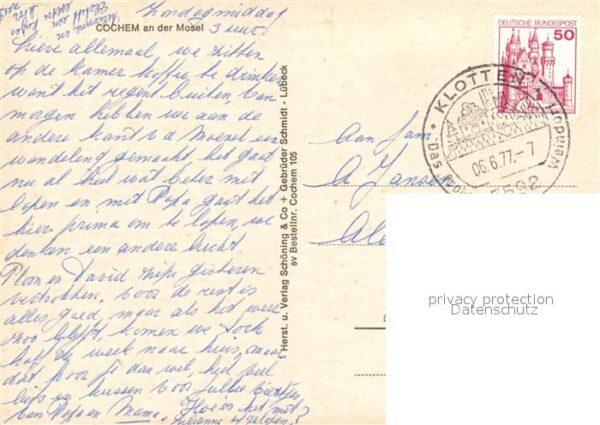 Zondagmiddag
3 uur.
COCHEM an der Mosel
Lieve allemaal, we zitten
op de kamer koffie te drinken
want het regent buiten, van
morgen hebben we aan de
andere kant v d Moesel een
wandeling gemaakt het gaat
nu al heel wat beter met
lopen en met Papa gaat het
hier prima om te lopen, we
denken een andere lucht
en David zijn gisteren
vertrokken. Voor de rest is
alles goed, maar als het weer
zoo blijft, komen we toch
half de week naar huis, maar
dat hoor je dan wel, heel veel
liefs en kussen voor jullie
van Papa en Mama. Hoe is het met
Julianne
Herst. u. Verlag Schöning & Co + Gebrüder Schmidt - Lübeck
sv Bestellnr. Cochem 105
DEUTSCHE BUNDESPOST
50
KLOTTEN
06.6.77.-7
5592
Aan Fam.
A Jansen
privacy protection
Datenschutz